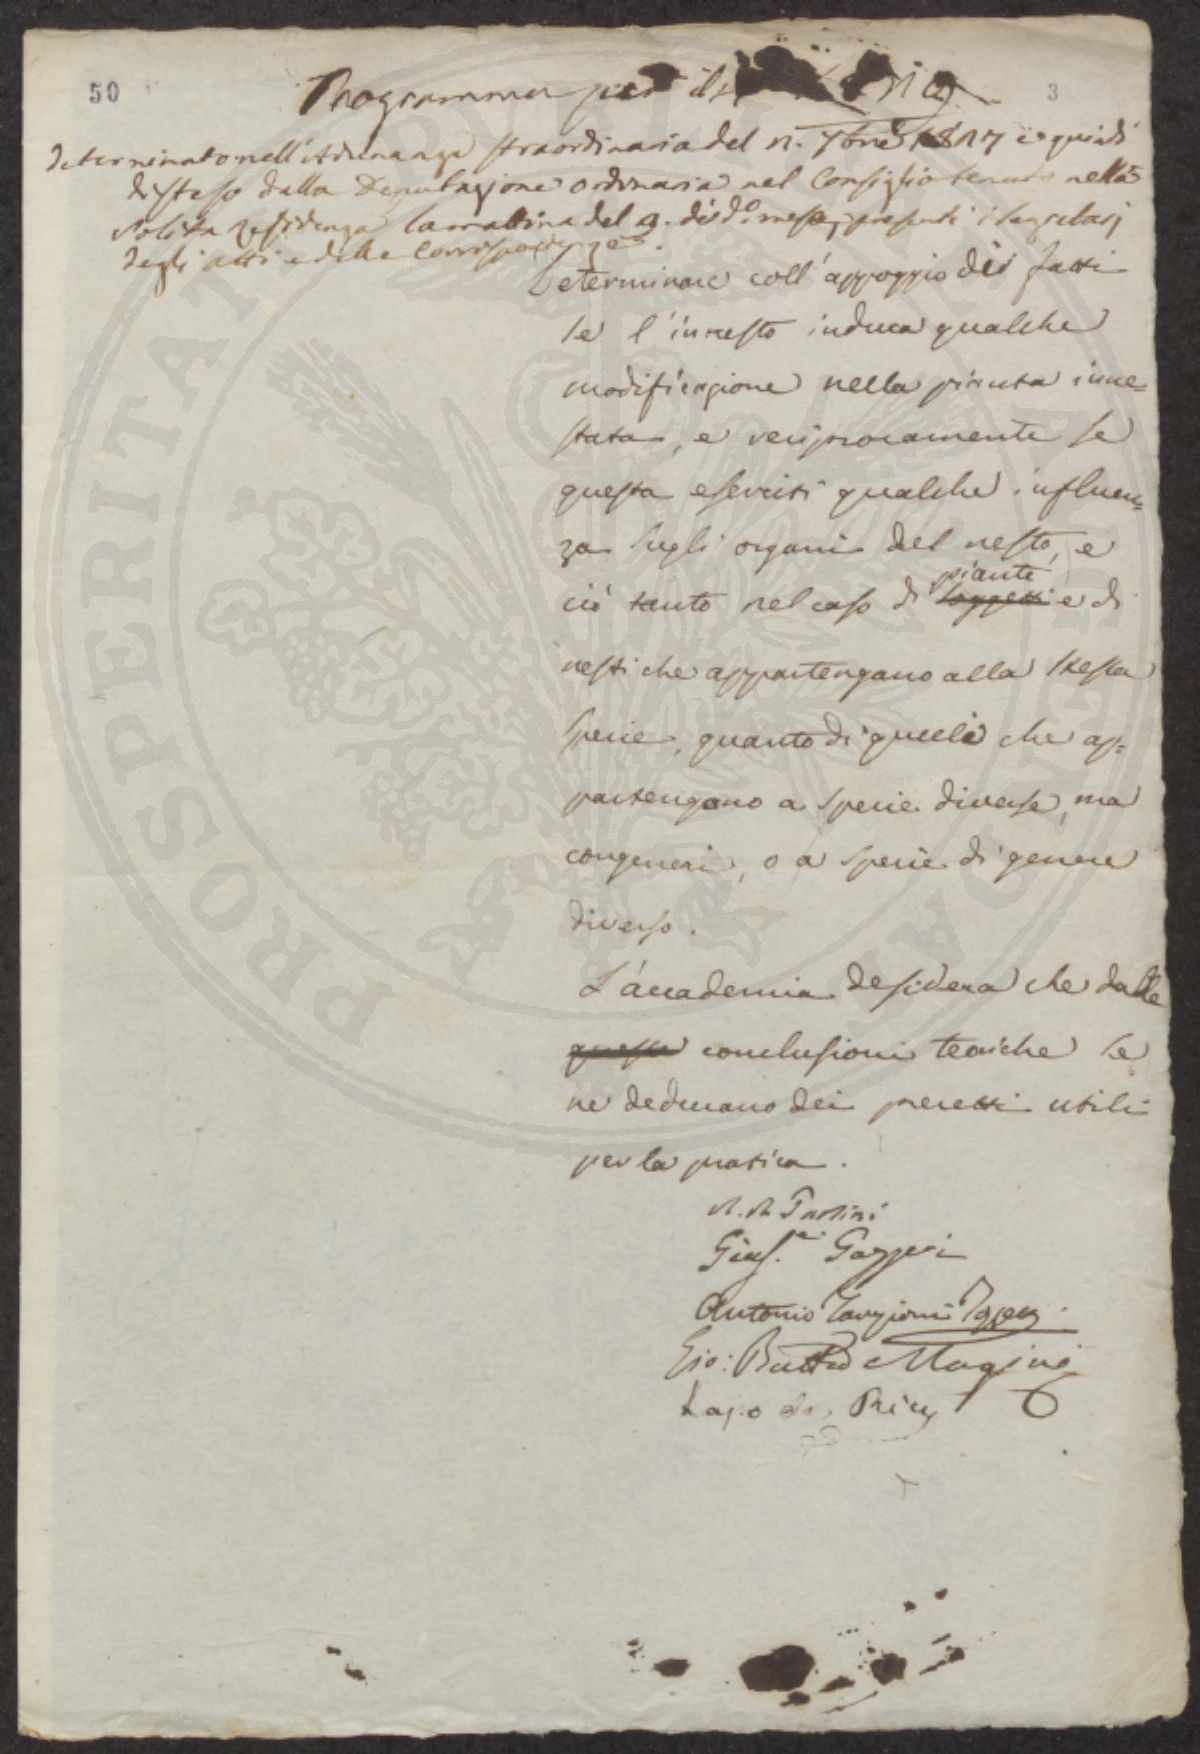 50
3
Programma per il
determinato nell'Adunanza straordinaria del 7bre 1817 e quindi
disteso dalla Deputazione ordinaria nel Consiglio tenuto nella
solita residenza la mattina del 9. di do. mese, presenti i Segretarj
degli atti e delle Corrispondenze
Determinare coll'appoggio dei fatti
se l'innesto induca qualche
modificazione nella pianta inne=
stata, e reciprocamente se
questa eserciti qualche influen=
za sugli organi del nesto, e
piante
ciò tanto nel caso di soggetti e di
nesti che appartengano alla stessa
specie, quanto di quelli che ap=
partengano a specie diverse, ma
congeneri, o a specie di genere
diverso.
L'accademia desidera che dalle
queste conclusioni teoriche se
ne deducano dei precetti utili
per la pratica.
Paolini
Gius.e Gazzeri
Antonio Targioni Tozzetti
Gio: Batta
Lapo de' Ricci
PROSPERITATI